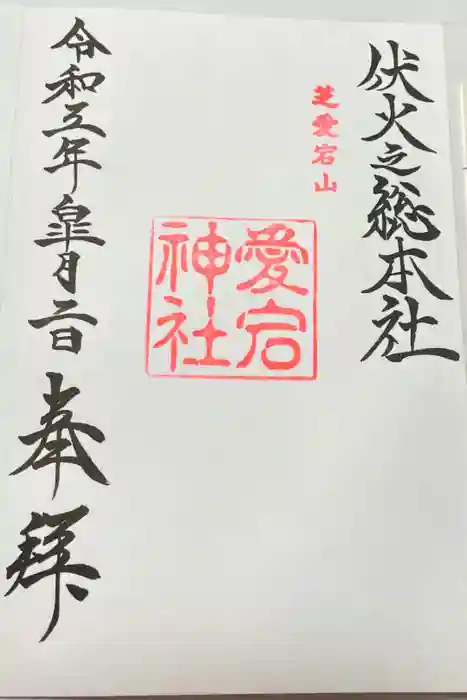 伏火之総本社
芝愛宕山
愛宕
神社
令和五年皐月二日 奉拝